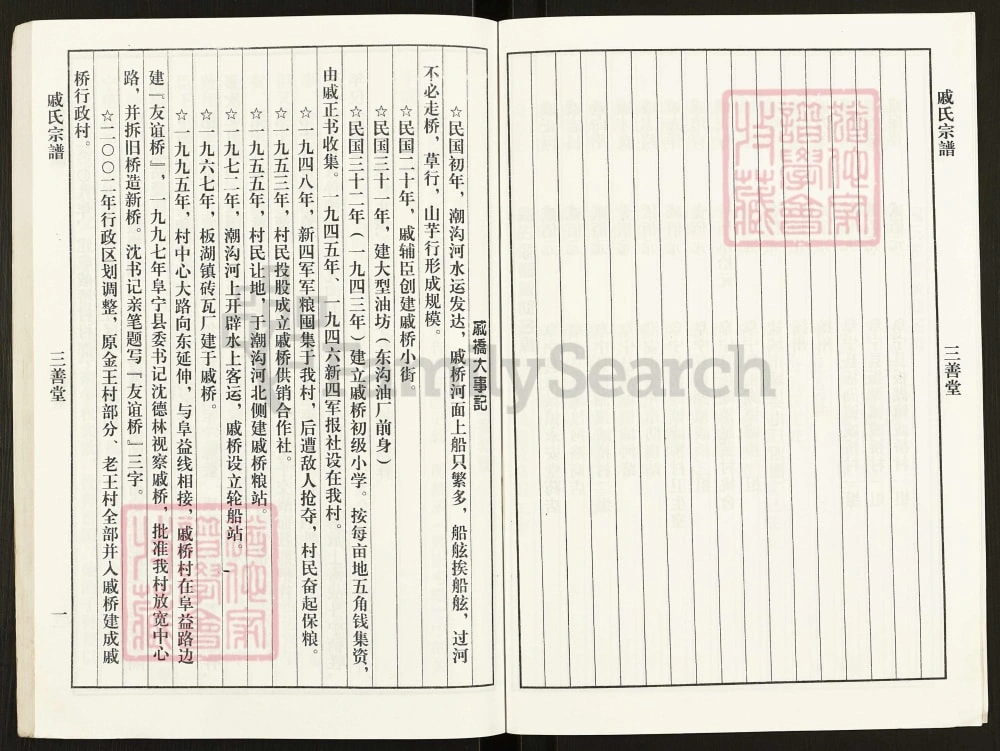 戚氏宗譜
三善堂
戚橋大事記
☆民国初年，潮沟河水运发达，戚桥河面上船只繁多，船舷挨船舷，过河
不必走桥，草行，山芋行形成规模。
☆民国二十年，戚辅臣创建戚桥小街
☆民国三十一年，建大型油坊（东沟油厂前身）
☆民国三十二年（一九四三年）建立戚桥初级小学。按每亩地五角钱集资，
由戚正书收集。一九四五年、一九四六新四军报社设在我村。
☆一九四八年，新四军军粮囤集于我村，后遭敌人抢夺，村民奋起保粮。
☆一九五三年，村民投股成立戚桥供销合作社。
☆一九五五年，村民让地，于潮沟河北侧建戚桥粮站。
☆一九七二年，潮沟河上开辟水上客运，戚桥设立轮船站。
☆一九六七年，板湖镇砖瓦厂建于戚桥。
☆一九九五年，村中心大路向东延伸，与阜益线相接，戚桥村在阜益路边
建『友谊桥』，一九九七年阜宁县委书记沈德林视察戚桥，批准我村放宽中心
路，并拆旧桥造新桥。沈书记亲笔题写『友谊桥』三字。
☆二〇〇二年行政区划调整，原金王村部分、老王村全部并入戚桥建成戚
桥行政村。
戚氏宗譜
三善堂
一
FamilySearch